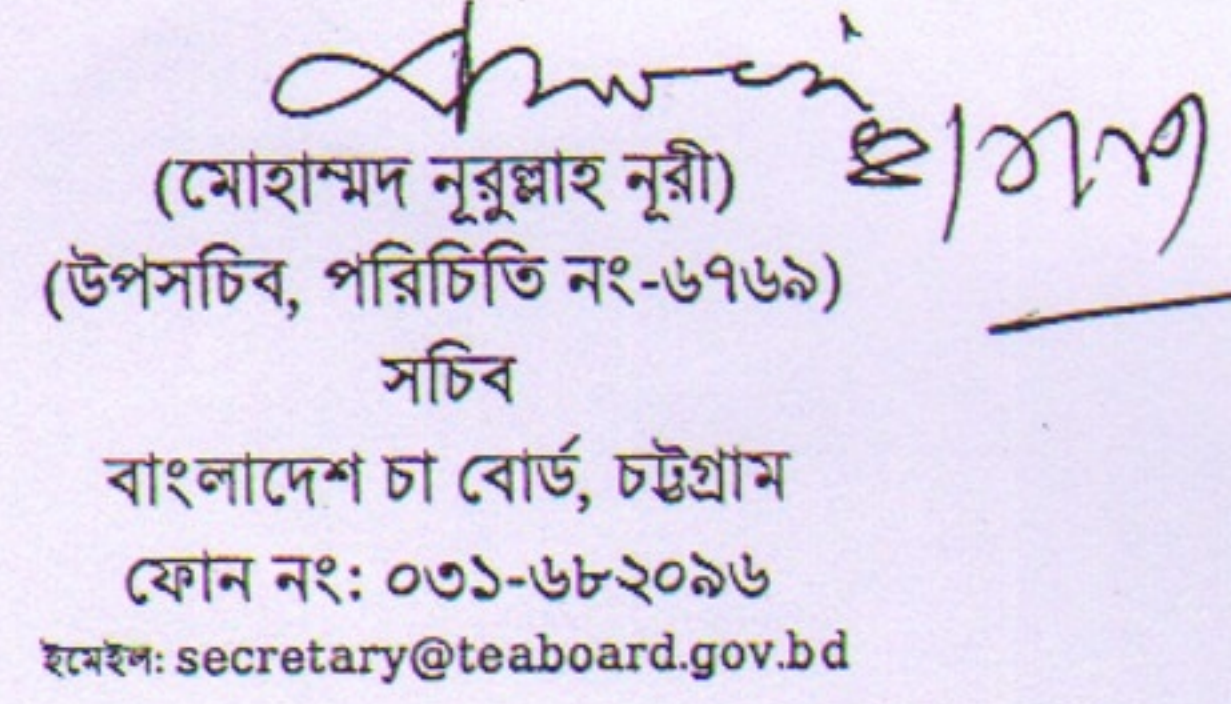 (মোহাম্মদ নূরুল্লাহ নূরী)
(উপসচিব, পরিচিতি নং-৬৭৬৯)
সচিব
বাংলাদেশ চা বোর্ড, চট্টগ্রাম
ফোন নং: ০৩১-৬৮২০৯৬
ইমেইল: secretary@teaboard.gov.bd